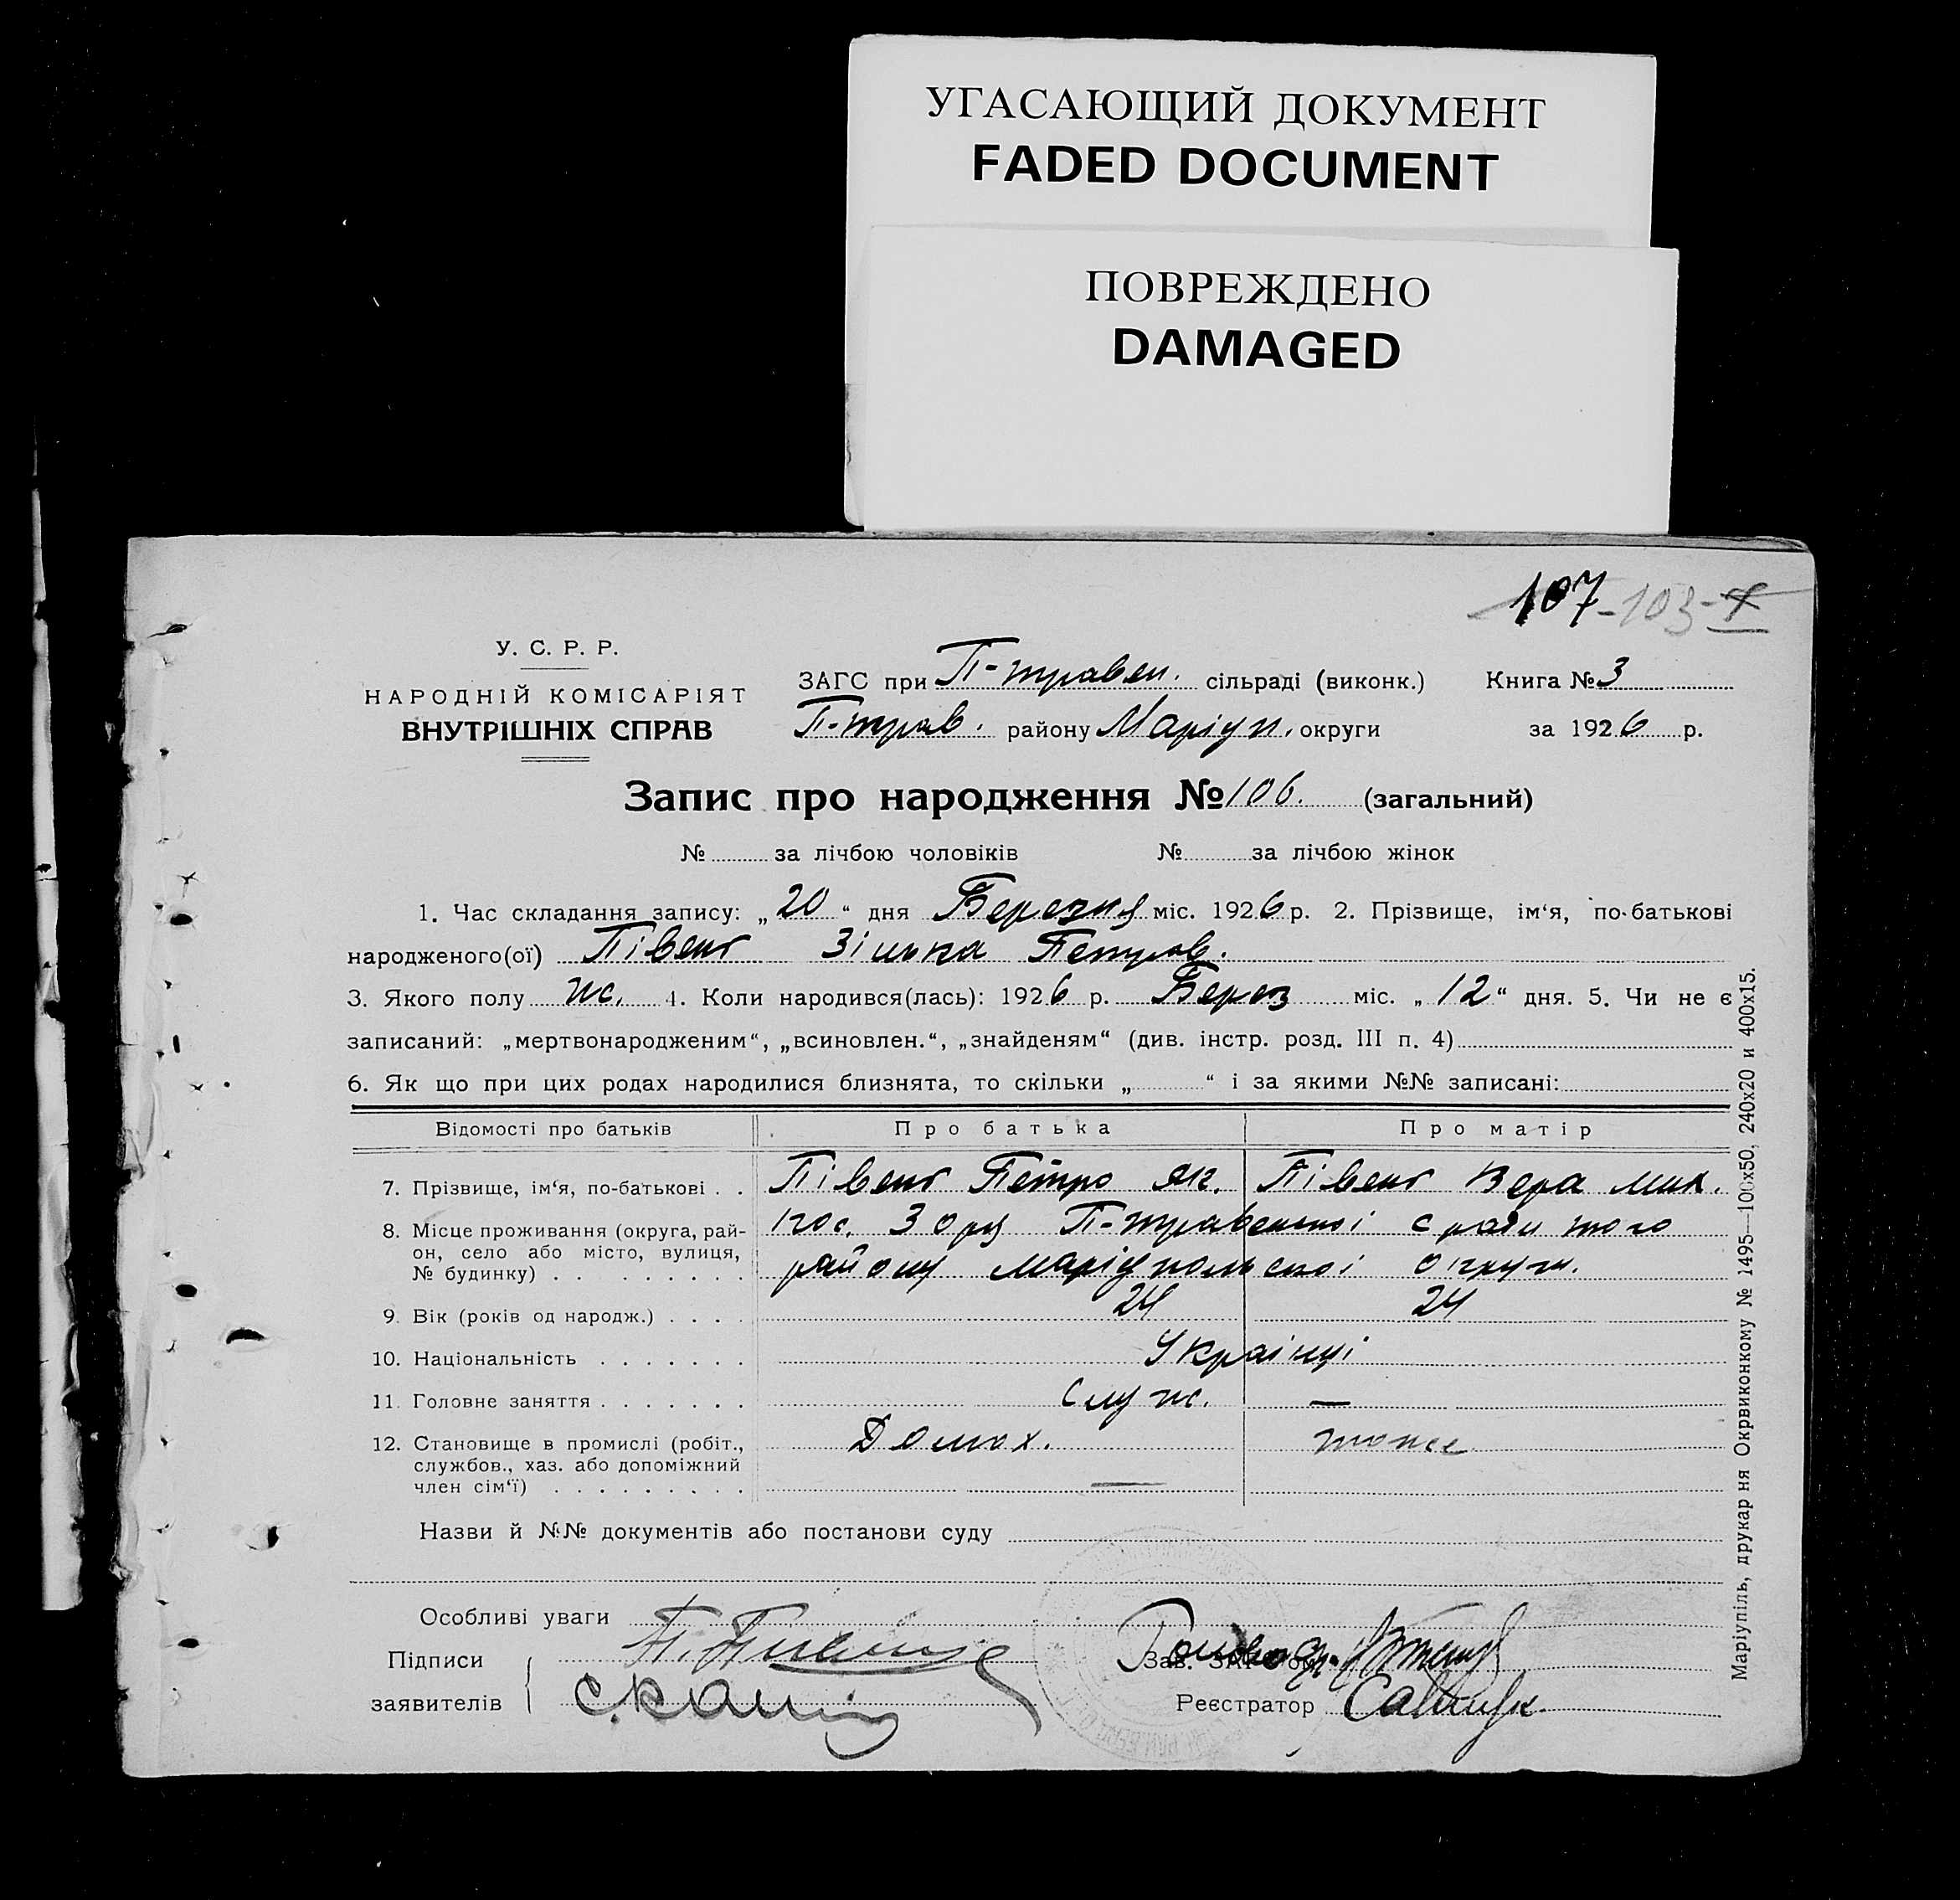 УГАСАЮЩИЙ ДОКУМЕНТ
FADED DOCUMENT
ПОВРЕЖДЕНО
DAMAGED
107-103-
У. С. Р. Р.
НАРОДНІЙ КОМІСАРІЯТ
ВНУТРІШНІХ СПРАВ
ЗАГС при П-травен. сільраді (виконк.) Книга № 3
П-трав. району Маріуп. округи за 1926 р.
Запис про народження № 106. (загальний)
№ за лічбою чоловіків № за лічбою жінок
1. Час складання запису: „20“ дня Березня міс. 1926 р. 2. Прізвище, ім‘я, по-батькові
народженого(ої) Півень Зінька Петров.
3. Якого полу ж. 4. Коли народився(лась): 1926 р. Берез міс. „12“ дня. 5. Чи не є
записаний: „мертвонародженим“, „всиновлен.“, „знайденям“ (див. інстр. розд. III п. 4)
6. Як що при цих родах народилися близнята, то скільки „ “ і за якими №№ записані:
Відомості про батьків Про батька Про матір
7. Прізвище, ім‘я, по-батькові . . Півень Петро Як. Півень Вера Мик.
8. Місце проживання (округа, рай-
он, село або місто, вулиця,
№ будинку) . . . . . . . . .
пос. Зоря П-травенської с ради того
району Маріупольської округи.
9. Вік (років од народж.) . . . . 24 24
10. Національність . . . . . . . Українці
11. Головне заняття . . . . . . . Служ. —
12. Становище в промислі (робіт.,
службов., хаз. або допоміжний
член сім‘ї) . . . . . . . . .
Домох. тоже
—
Назви й №№ документів або постанови суду
Особливі уваги
Підписи
заявителів
Зав. ЗАГ‘ом
Реєстратор
Маріупіль, друкарня Окрвиконкому № 1495—100х50, 240х20 и 400х15.